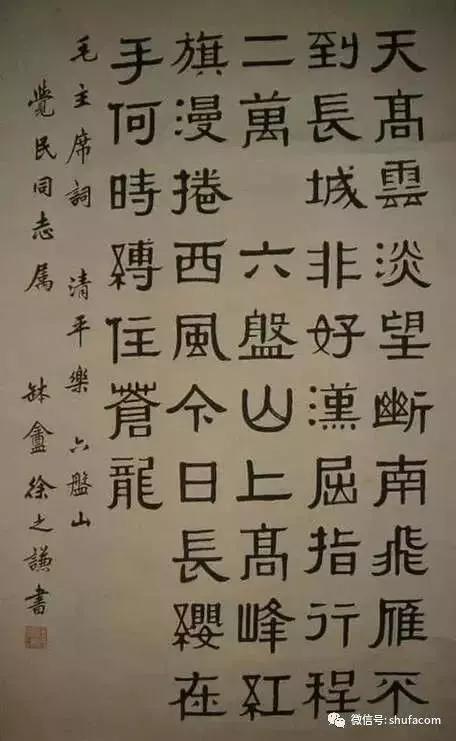 天髙雲淡望斷南飛雁不
到長城非好漢屈指行程
二萬 六盤山上髙峰紅
旗漫捲西風今日長纓在
手何時縛住蒼龍
毛主席詞 清平樂 六盤山
覺民同志属 缽盦徐之謙書
微信号: shufacom